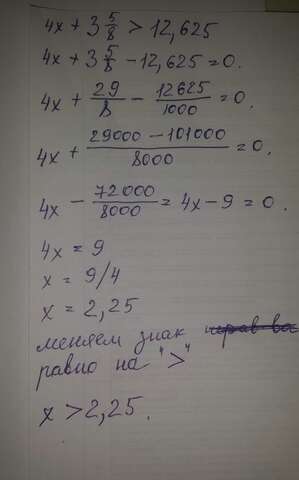 4x + 3 5/8 > 12,625
4x + 3 5/8 - 12,625 = 0.
4x + 29/8 - 12625/1000 = 0.
4x + (29000 - 101000)/8000 = 0.
4x - 72000/8000 = 4x - 9 = 0.
4x = 9
x = 9/4
x = 2,25
меняем знак
равно на ">"
x > 2,25.